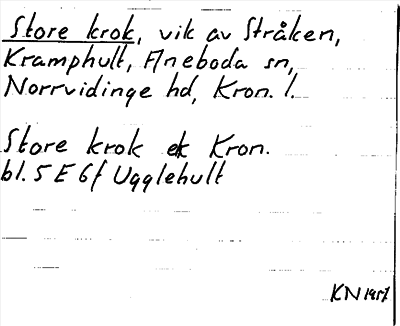 Store krok, vik av Stråken,
Kramphult, Aneboda sn,
Norrvidinge hd, Kron. l.
Store krok ek Kron.
bl. 5 E 6f Ugglehult
KN 1957